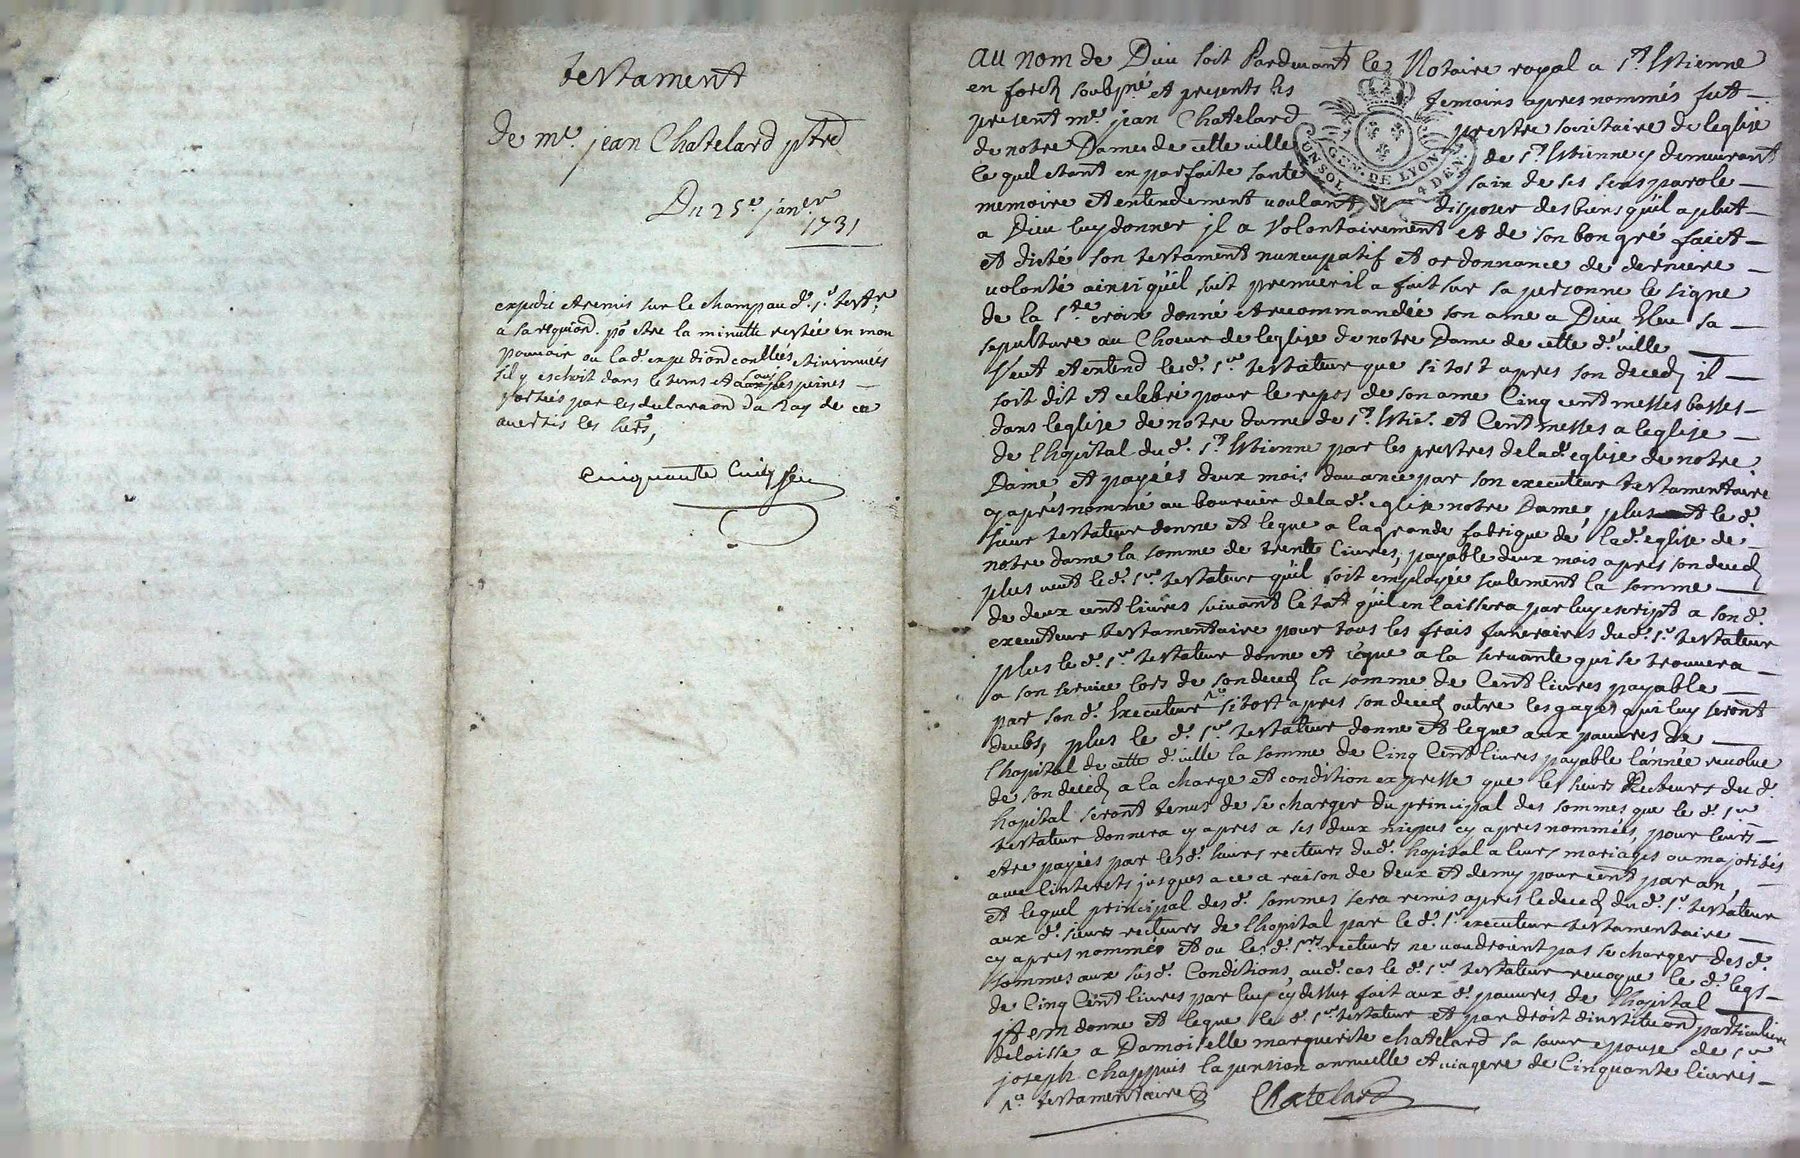 testament
de me. jean Chatelard ptre
Du 25e. janer
1731
expedié et remis sur le champ au d. sr. testr.
a sa requiond. po estre la minutte restée en mon
pouvoir ou lad. expediond conllés et insinués
sil y eschoit dans le tems et aux sous les peines
portées par les declaraond du Roy de ce
avertis les herrs,
Cinquante Cinq
au nom de Dieu soit Pardevant le Notaire royal a St. Estienne
en forest soubpné et presents les temoins apres nommés fut
present me. jean Chatelard prestre societaire de leglise
de notre Dame de cette ville de St. Estienne y demeurant
lequel etant en parfaite sante sain de ses sens parole
memoire et entendement voulant disposer des biens qu'il a plut
a Dieu luy donner jl a volontairement et de son bon gré faict
et dicté son testament nuncupatif et ordonnance de derniere
volonté ainsi qu'il suit premier il a fait sur sa personne le signe
de la Ste. croix donné et recommandée son ame a Dieu Eleu sa
sepulture au Choeur de leglise de notre Dame de cette d. ville
Veut et entend led. sr. testateur que si tost apres son deced il
soit dit et celebré pour le repos de son ame Cinq cent messes basses
dans leglise de notre dame de St. Estie. et Cent messes a leglise
de lhopital dud. St. Estienne par les prestres de lad. eglise de notre
Dame, et payées deux mois davance par son executeur testamentaire
cy apres nommé au boursier de lad. eglise notre Dame, plus led.
sieur testateur donne et legue a la grande fabrique de lad. eglise de
notre dame la somme de trente livres, payable deux mois apres son deced
plus veut led. sr. testateur qu'il soit employée seulement la somme
de deux cent livres suivant letat qu'il en laissera par luy escript a son d.
executeur testamentaire pour tous les frais funeraires dud. sr. testateur
plus led. sr. testateur donne et legue a la servante qui se trouvera
a son service lors de son deced la somme de Cent livres payable
par son d. Executeur 1a si tost apres son deced outre les gages qui luy seront
deubs, plus le d. sr. testateur donne et legue aux pauvres de
lhopital de cette d. ville la somme de Cinq Cent livres payable l'année revolue
de son deced a la charge et condition expresse que les sieurs Recteurs dud.
hopital seront tenus de se charger du principal des sommes que le d. sr.
testateur donnera cy apres a ses deux niepces cy apres nommées, pour leurs
etre payées par lesd. sieurs recteurs dud. hopital a leurs mariages ou majorités
avec l'interets jusques a ce a raison de deux et demy pour cent par an,
et lequel principal desd. sommes sera remis apres le deced dud. sr. testateur
aux d. sieurs recteurs de lhopital par le d. sr. executeur testamentaire
cy apres nommée et ou lesd. srs. recteurs ne voudroient pas se charger desd.
sommes aux susd. Conditions, aud. cas le d. sr. testateur revoque le d. legs
de Cinq Cent livres par luy cy dessus fait aux d. pauvres de lhopital
jtem donne et legue le d. sr. testateur et par droit d'institeond particuliere
delaisse a Damoiselle marguerite chatelard sa soeur epouse de sr
joseph chappuis la pension annuelle et viagere de Cinquante livres
1a testamentaire
Chatelard
GEN. DE LYON
UN SOL
4 DEN.